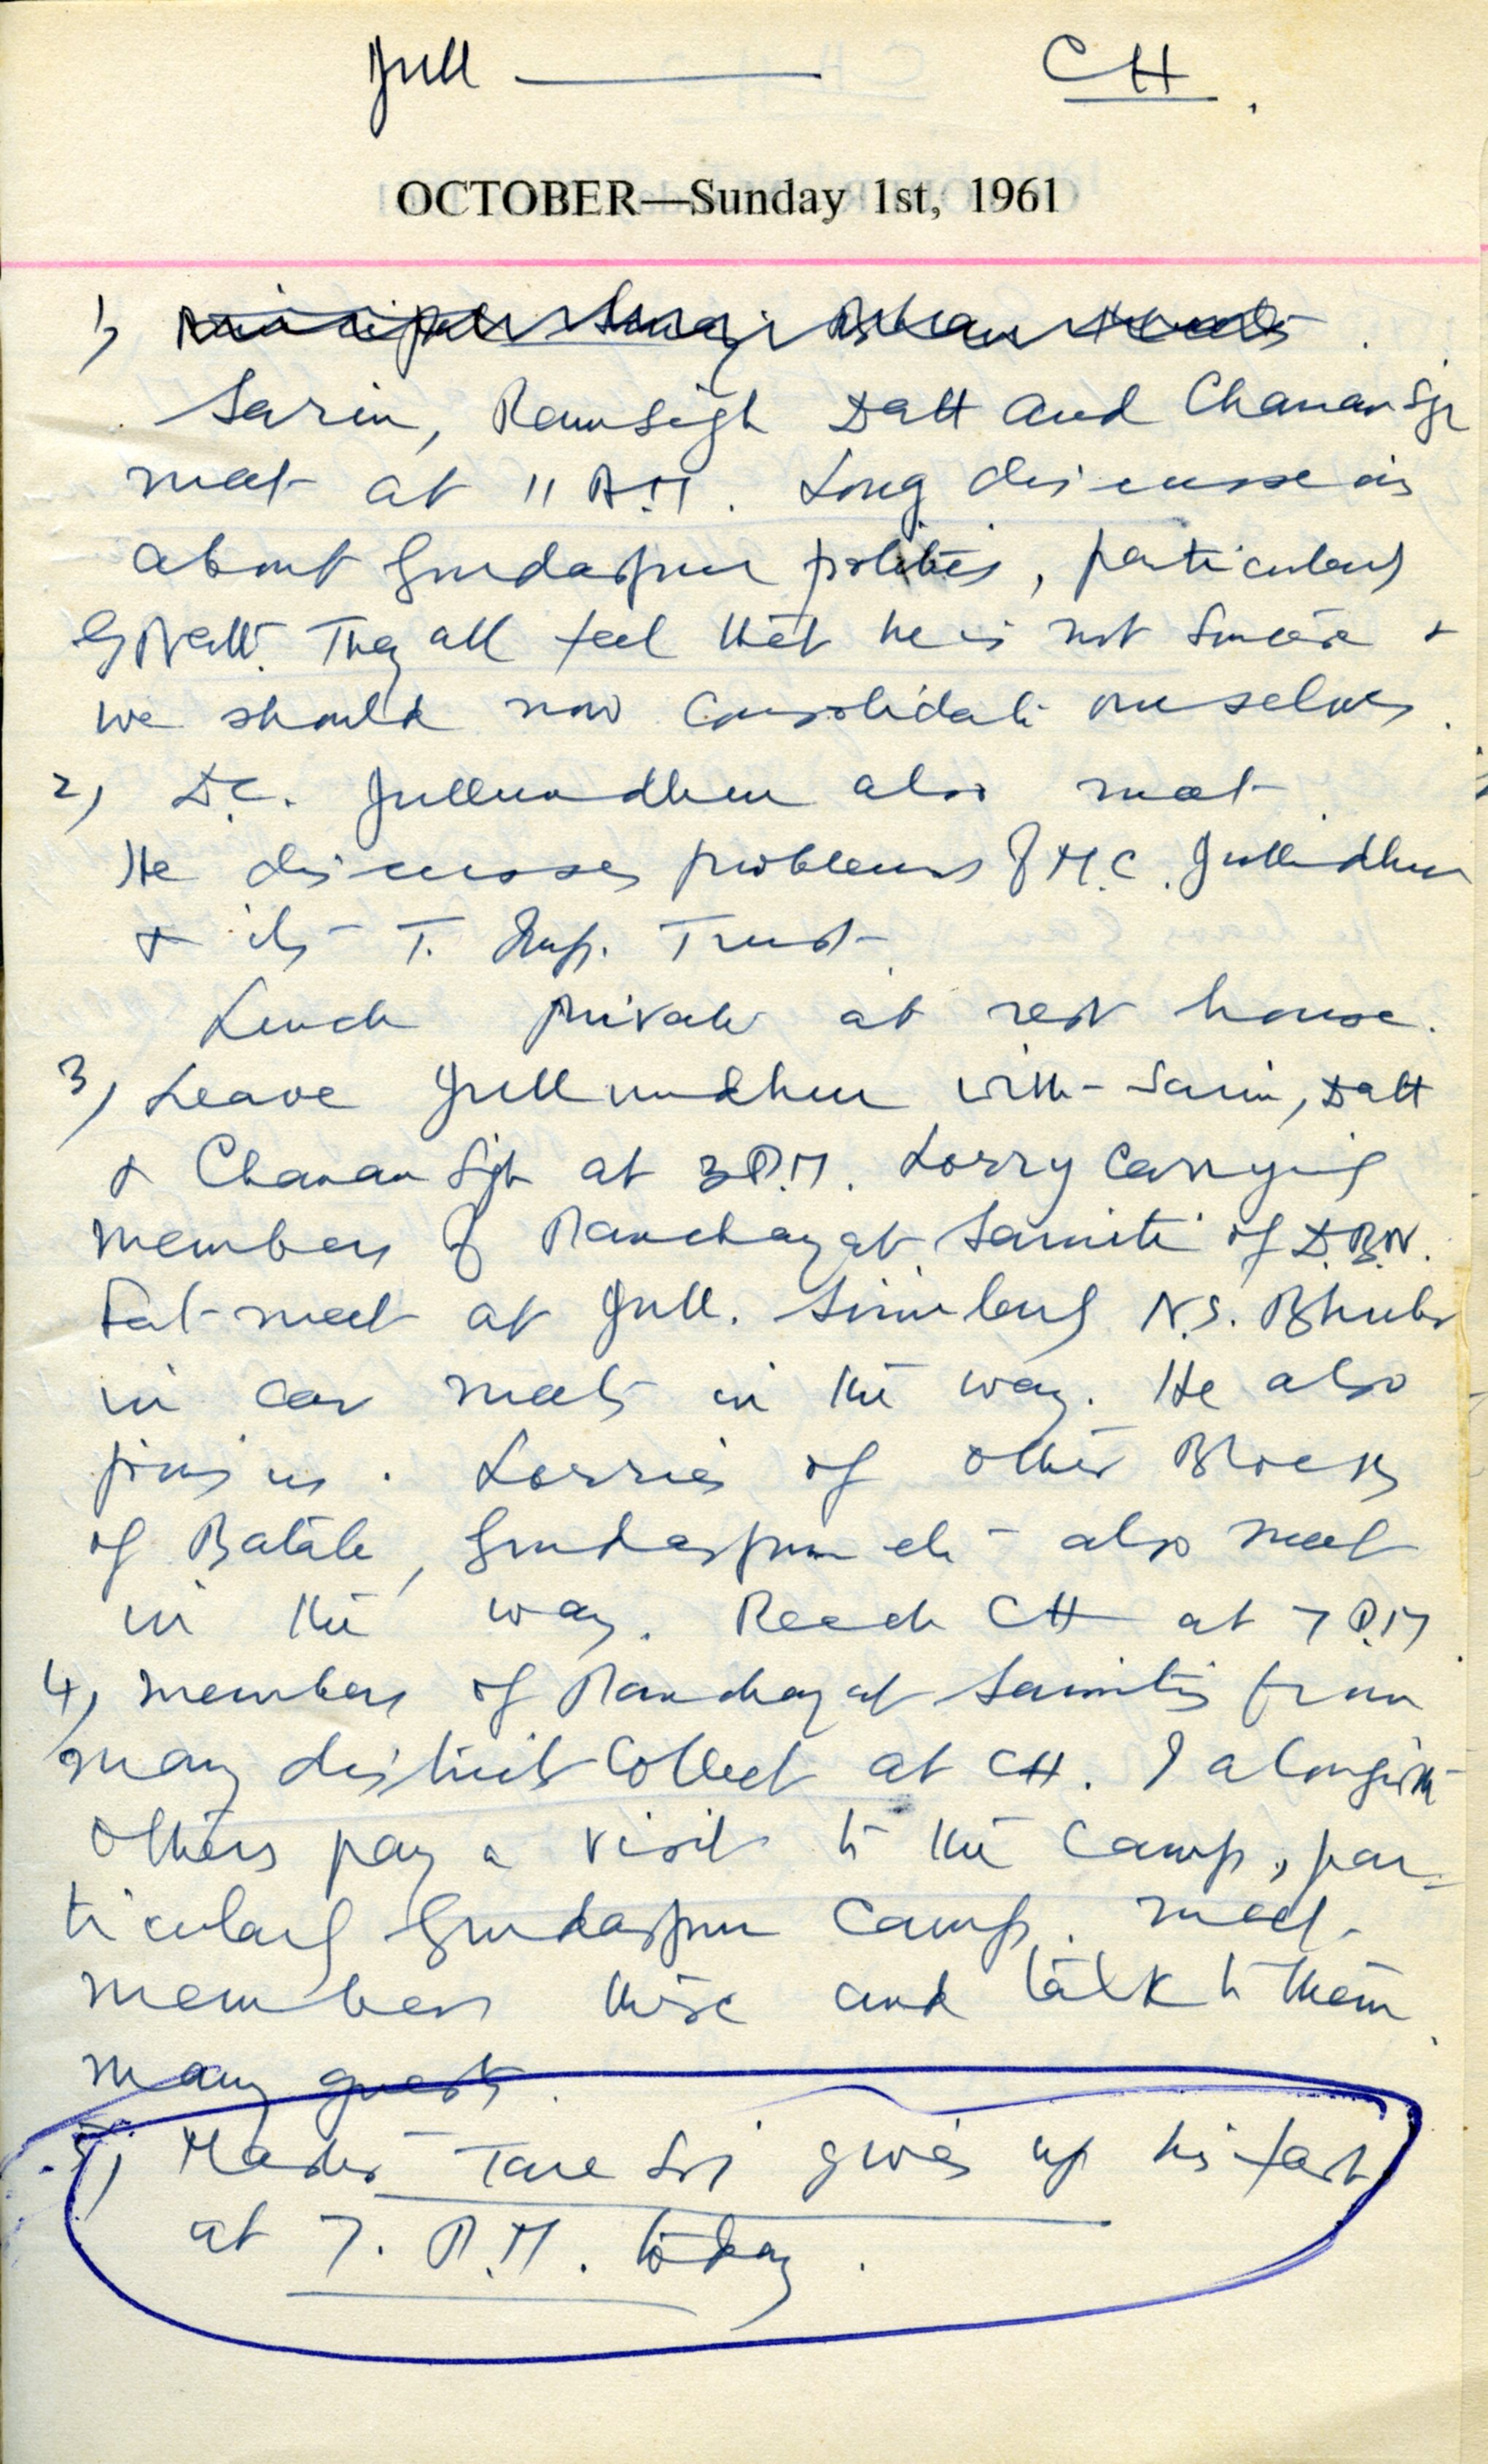 Jull —— CH.
OCTOBER—Sunday 1st, 1961
1) Principal Suraj Bhan meets.
Sarin, Ram Singh Datt and Chanan Sgh
meet at 11 A.M. Long discussions
about Gurdaspur politics, particularly
They all feel that he is not sincere &
we should now consolidate ourselves.
2) D.C. Jullundhur also meet.
He discusses problems of M.C. Jullundhur
& its T. Imp. Trust.
Lunch private at rest house.
3) Leave Jullundhur with Sarin, Datt
& Chanan Sgh at 3 P.M. Lorry carrying
members of Panchayat Samiti of D.B.N.
meet at Jull. Similarly N.S.
in car meets in the way. He also
joins us. Lorries of other Blocks
of Batala, Gurdaspur etc also meet
in the way. Reach CH at 7 P.M.
4) Members of Panchayat Samitis from
many districts collect at CH. I alongwith
others pay a visit to the camp, par-
ticularly Gurdaspur Camp. Meet
members there and talk to them.
many guests.
5) Master Tara Sgh gives up his fast
at 7. P.M. today.